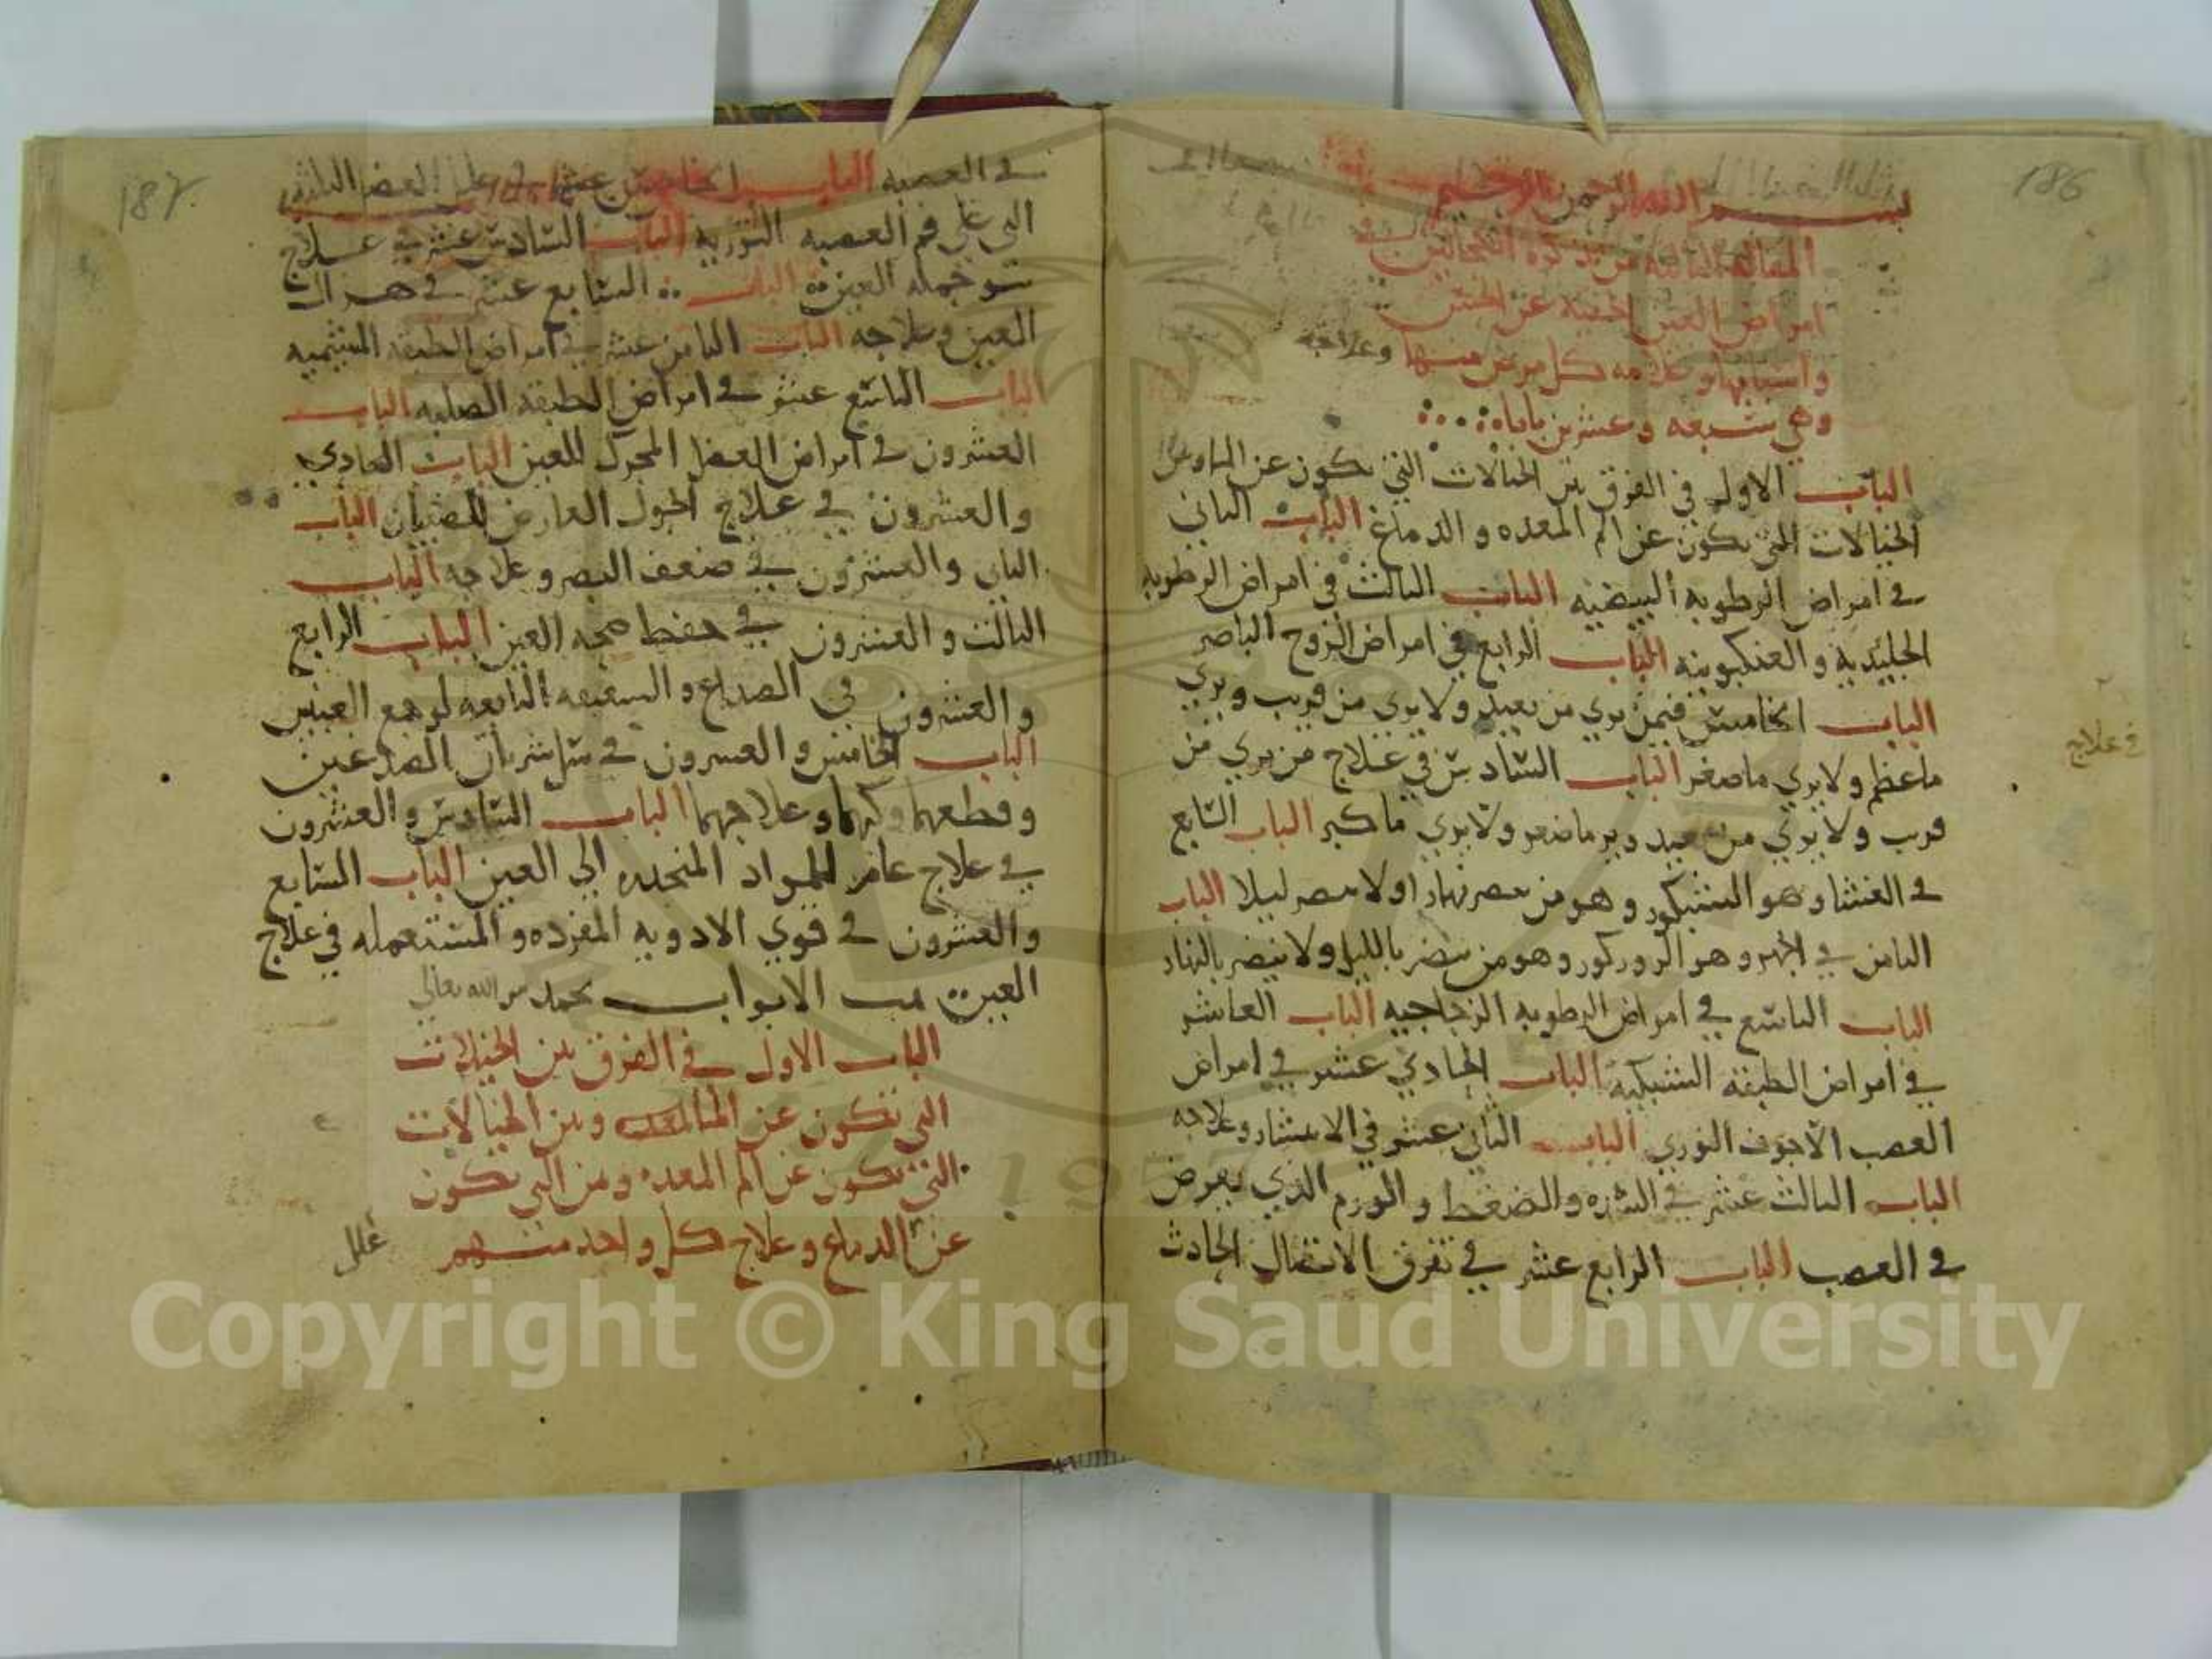 186
بسم الله الرحمن الرحيم
المقالة الثالثة من تذكرة الكحالين في
امراض العين الخفية عن الحس
واسبابها وعلامه كل مرض منها وعلاجه
وهي سبعه وعشرين بابا
الباب الاول في الفرق بين الخيالات التي تكون عن الماء وبين
الخيالات التي تكون عن الم المعده والدماغ الباب الثاني
في امراض الرطوبه البيضيه الباب الثالث في امراض الرطوبه
الجليديه والعنكبوتيه الباب الرابع في امراض الروح الباصر
الباب الخامس فيمن يري من بعيد ولا يري من قريب ويري
ما عظم ولا يري ما صغر الباب السادس في علاج من يري من
قرب ولا يري من بعيد وير ما صغر ولا يري ما كبر الباب السابع
في العشا وهو الشبكور وهو من يبصر نهارا ولا يبصر ليلا الباب
الثامن في الجهر وهو الروركور وهو من يبصر بالليل ولا يبصر بالنهار
الباب التاسع في امراض الرطوبه الزجاجيه الباب العاشر
في امراض الطبقه الشبكيه الباب الحادي عشر في امراض
العصب الاجوف النوري الباب الثاني عشر في الانتشار وعلاجه
الباب الثالث عشر في السده والضغط والورم الذي يعرض
في العصب الباب الرابع عشر في تفرق الاتصال الحادث
في علاج
187
في العصبه الباب الخامس عشر في علل العضل الثلاث
التي علي فم العصبه النوريه الباب السادس عشر في علاج
نتو جمله العين الباب السابع عشر في هزال
العين وعلاجه الباب الثامن عشر في امراض الطبقه المشيميه
الباب التاسع عشر في امراض الطبقه الصلبه الباب
العشرون في امراض العضل المحرك للعين الباب الحادي
والعشرون في علاج الحول العارض للصبيان الباب
الثاني والعشرون في ضعف البصر وعلاجه الباب
الثالث والعشرون في حفظ صحه العين الباب الرابع
والعشرون في الصداع والشقيقه التابعه لوجع العينين
الباب الخامس والعشرون في سل شريان الصدغين
وقطعهما وكيهما وعلاجهما الباب السادس والعشرون
في علاج عام للمواد المنحدره الي العين الباب السابع
والعشرون في قوي الادويه المفرده والمستعمله في علاج
العين تمت الابواب بحمد الله تعالي
الباب الاول في الفرق بين الخيالات
التي تكون عن الماء وبين الخيالات
التي تكون عن الم المعده ومن التي تكون
عن الدماغ وعلاج كل واحد منهم
علل
Copyright © King Saud University
1957